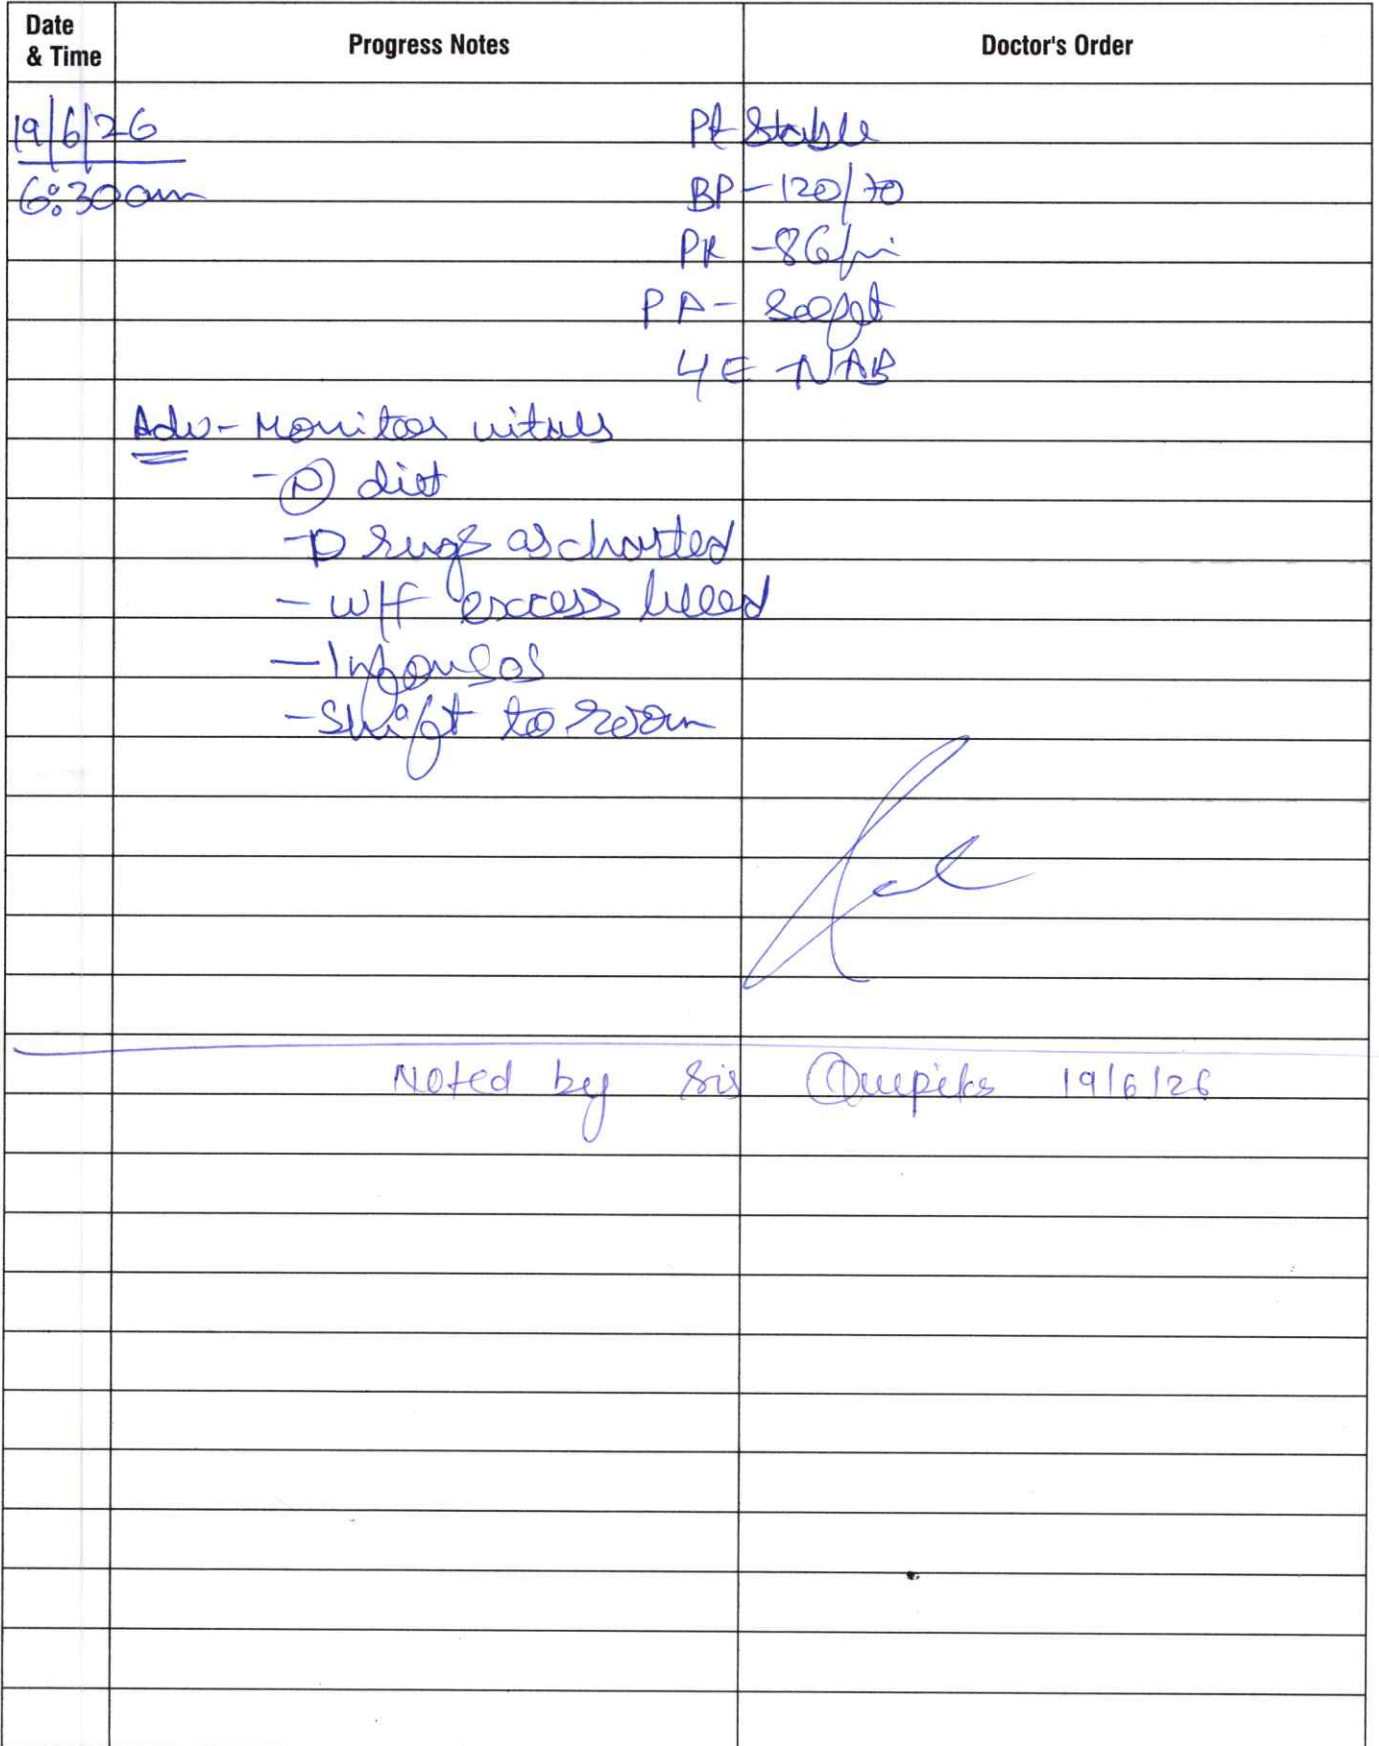 Date & Time
Progress Notes
Doctor's Order
19/6/26
6:30am
Pt Stable
BP - 120/70
PR - 86/mi
PA - Soft
NAB
Adv - Monitor vitals
- (N) diet
- Drugs as charted
- w/f excess bleed
- Inform sos
- Shift to room
Noted by Sis 19/6/26